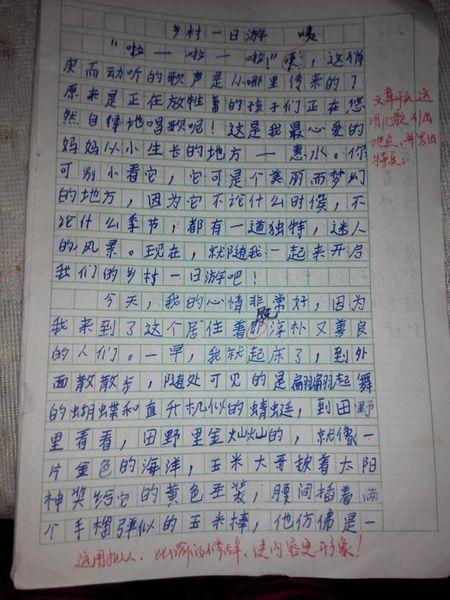 乡村一日游 咦
“啦一啦一啦!”咦,这俏
皮而动听的歌声是从哪里传来的?
原来是正在放牲畜的孩子们正在悠
然自得地唱歌呢!这是我最心爱的
妈妈从小生长的地方—惠水。你
可别小看它,它可是个美丽而梦幻
的地方,因为它不论什么时候,不
论什么季节,都有一道独特,迷人
的风景。现在,就随我一起来开启
我们的乡村一日游吧!
今天,我的心情非常好,因为
我来到了这个居住着即淳朴又善良
的人们。一早,我就起床了,到外
面散散步,随处可见的是翩翩起舞
的蝴蝶和直升机似的蜻蜓,到田野
里看看,田野里金灿灿的,就像一
片金色的海洋,玉米大哥披着太阳
神奖给它的黄色圣装,腰间插着两
个手榴弹似的玉米棒,他仿佛是一
文章开头运
用儿歌引出
地点,并写出
特点。
运用拟人、比喻的修辞,使内容更形象!